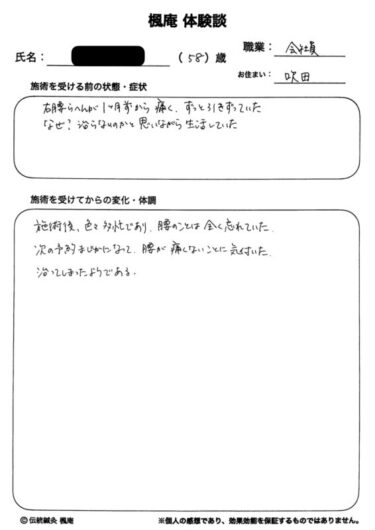 楓庵 体験談
氏名：
（58）歳
職業： 会社員
お住まい： 吹田
施術を受ける前の状態・症状
右腰らへんが1ヶ月前から痛く、ずっと引きずっていた
なぜ？治らないのかと思いながら生活していた
施術を受けてからの変化・体調
施術後、色々多忙であり、腰のことは全く忘れていた。
次の予約まじかになって、腰が痛くないことに気付いた。
治ってしまったようである。
© 伝統鍼灸 楓庵
※個人の感想であり、効果効能を保証するものではありません。